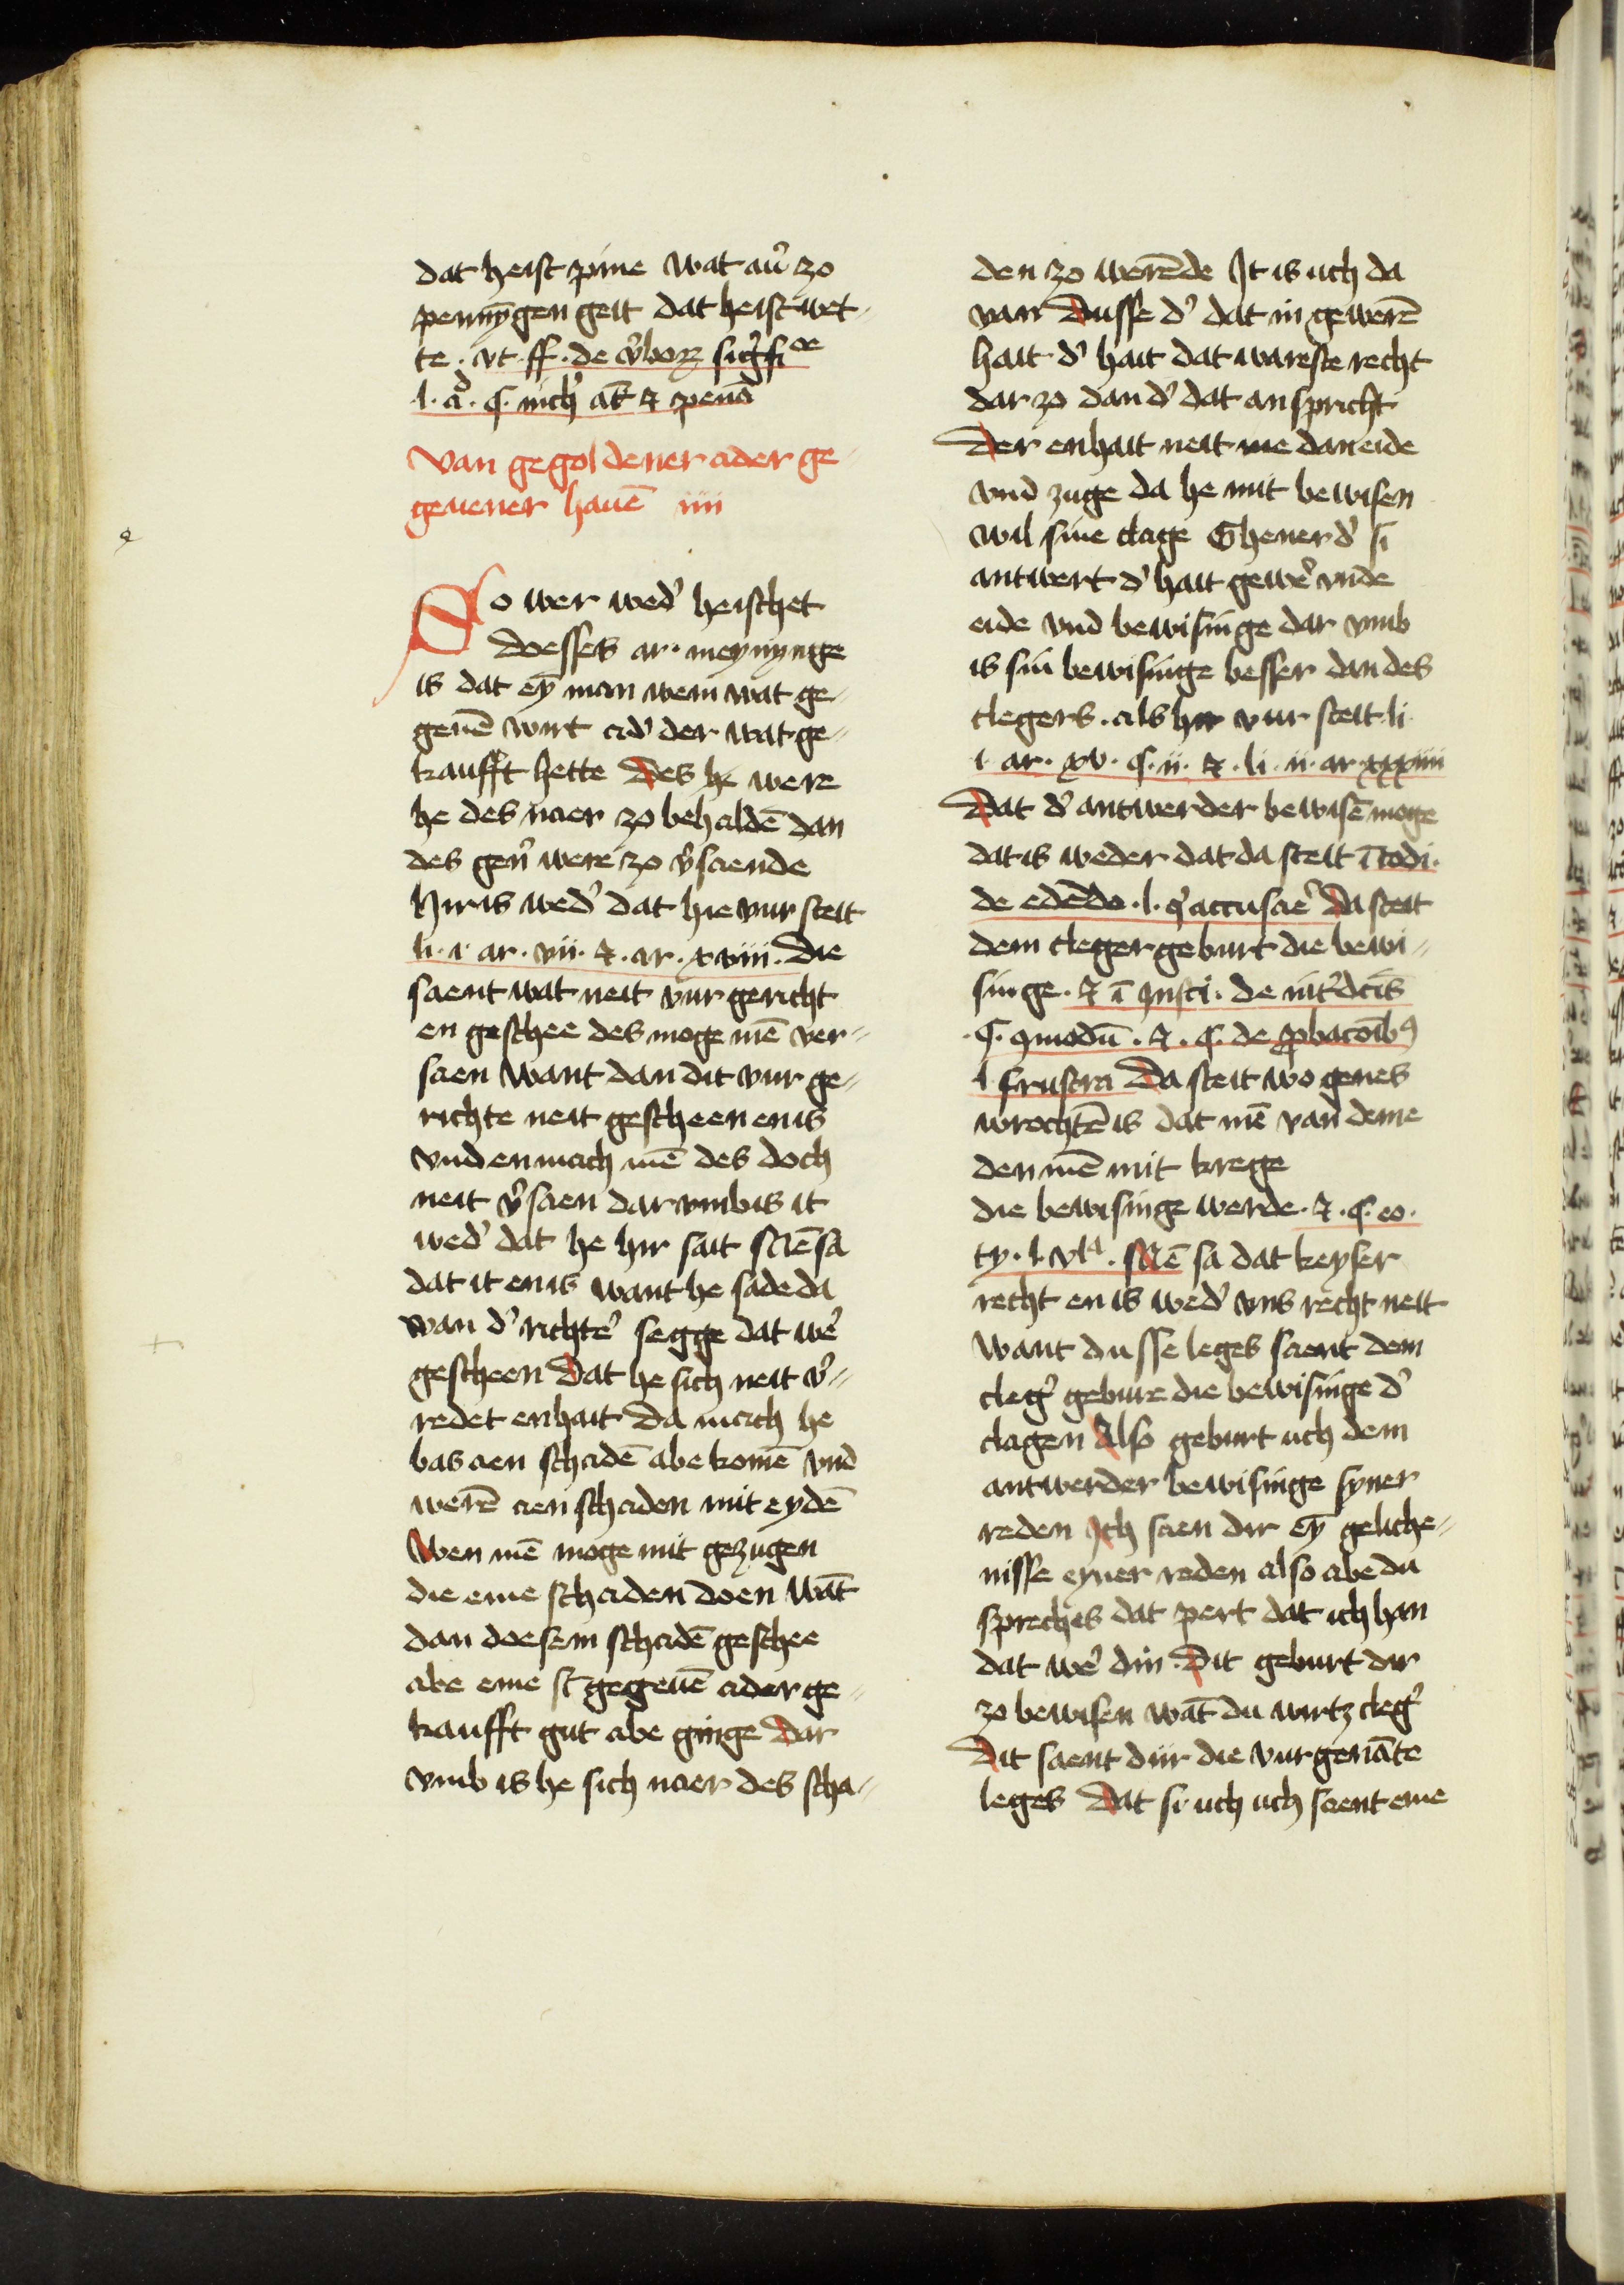 dat heist pine wat au̾ zo
pennȳgen geit dat heist wet-
te . vt . ff . de v̾boꝝ sig̾fi
l . a . ¶ . nich̾ ak̄ ⁊ pena
Van gegoldener ader ge-
geuener hauē iiii
So wer wed̾ heischet
doesses ar . meynynge
is dat eȳ man wem wat ge-
geuē wirt ad̾ der wat ge-
kaufft hette Des he were
he des naer zo behaldē dan
des gen̾ were zo v̾saende
Hir is wed̾ dat hie vur steit
li . i . ar . vii . ⁊ . ar . xviii . Die
saent wat neit vur gericht
en geschee des moge mē ver-
saen want dan dit vur ge-
richte neit gescheen en is
vnd en mach mē des doch
neit v̾saen dar vmb is it
wed̾ dat he hir sait Mē sa
dat it en is want he sade da
van d̾ richte̾ segge dat we̾
gescheen Dat he sich neit v̾-
redet enhait Da mach he
bas aen schadē abe komē vnd
werē aen schaden mit eydē
Wen mē moge mit gezugen
die eme schaden doen wāt
dan doesem schadē geschee
abe eme sī gegeuē ader ge-
kaufft gut abe ginge dar
vmb is he sich naer des scha-
den zo werēde It is uch da
van Dusse d̾ dat in gewerē
hait d̾ hait dat wareste recht
dar zo dan d̾ dat anspricht
Der enhait neit me dan eide
vnd zuge da he mit bewisen
wil sine clage Ghener d̾ si
antwert d̾ hait gewe̾ vnde
eide vnd bewisinge dar vmb
is sin bewisinge besser dan des
clegers . als hir vur steit li
i . ar . xv . ¶ . ii . ⁊ . li . ii . ar . xxxiiii
Dat d̾ antwerder bewisē moge
dat is weder dat da steit ī codi .
de edēdo . l . q̾ accusare̾ Da steit
dem cleger geburt die bewi-
singe . ⁊ ī Insti . de int̾dcīs
¶ . qmodū . ⁊ . ¶ . de ꝓbacoīb9
l frustra Da steit wo genes
wrochtē is dat mē van deme
den mē mit krege
die bewisinge werde . ⁊ . ¶ . eo .
ty . l . vla . Mē sa dat keyser
recht en is wed̾ vns recht neit
want dusse leges saent dem
cleg̾ gebure die bewisinge d̾
clagen Also geburt uch dem
antwerder bewisinge syner
reden Ich saen dir eȳ geliche-
nisse eyner reden also abe du
spreches dat pert dat ich han
dat we̾ din . Dit geburt dir
zo bewisen wāt du wirtz cleg̾
Dit saent dir die vurgenāte
leges Dat si uch uch saent eme